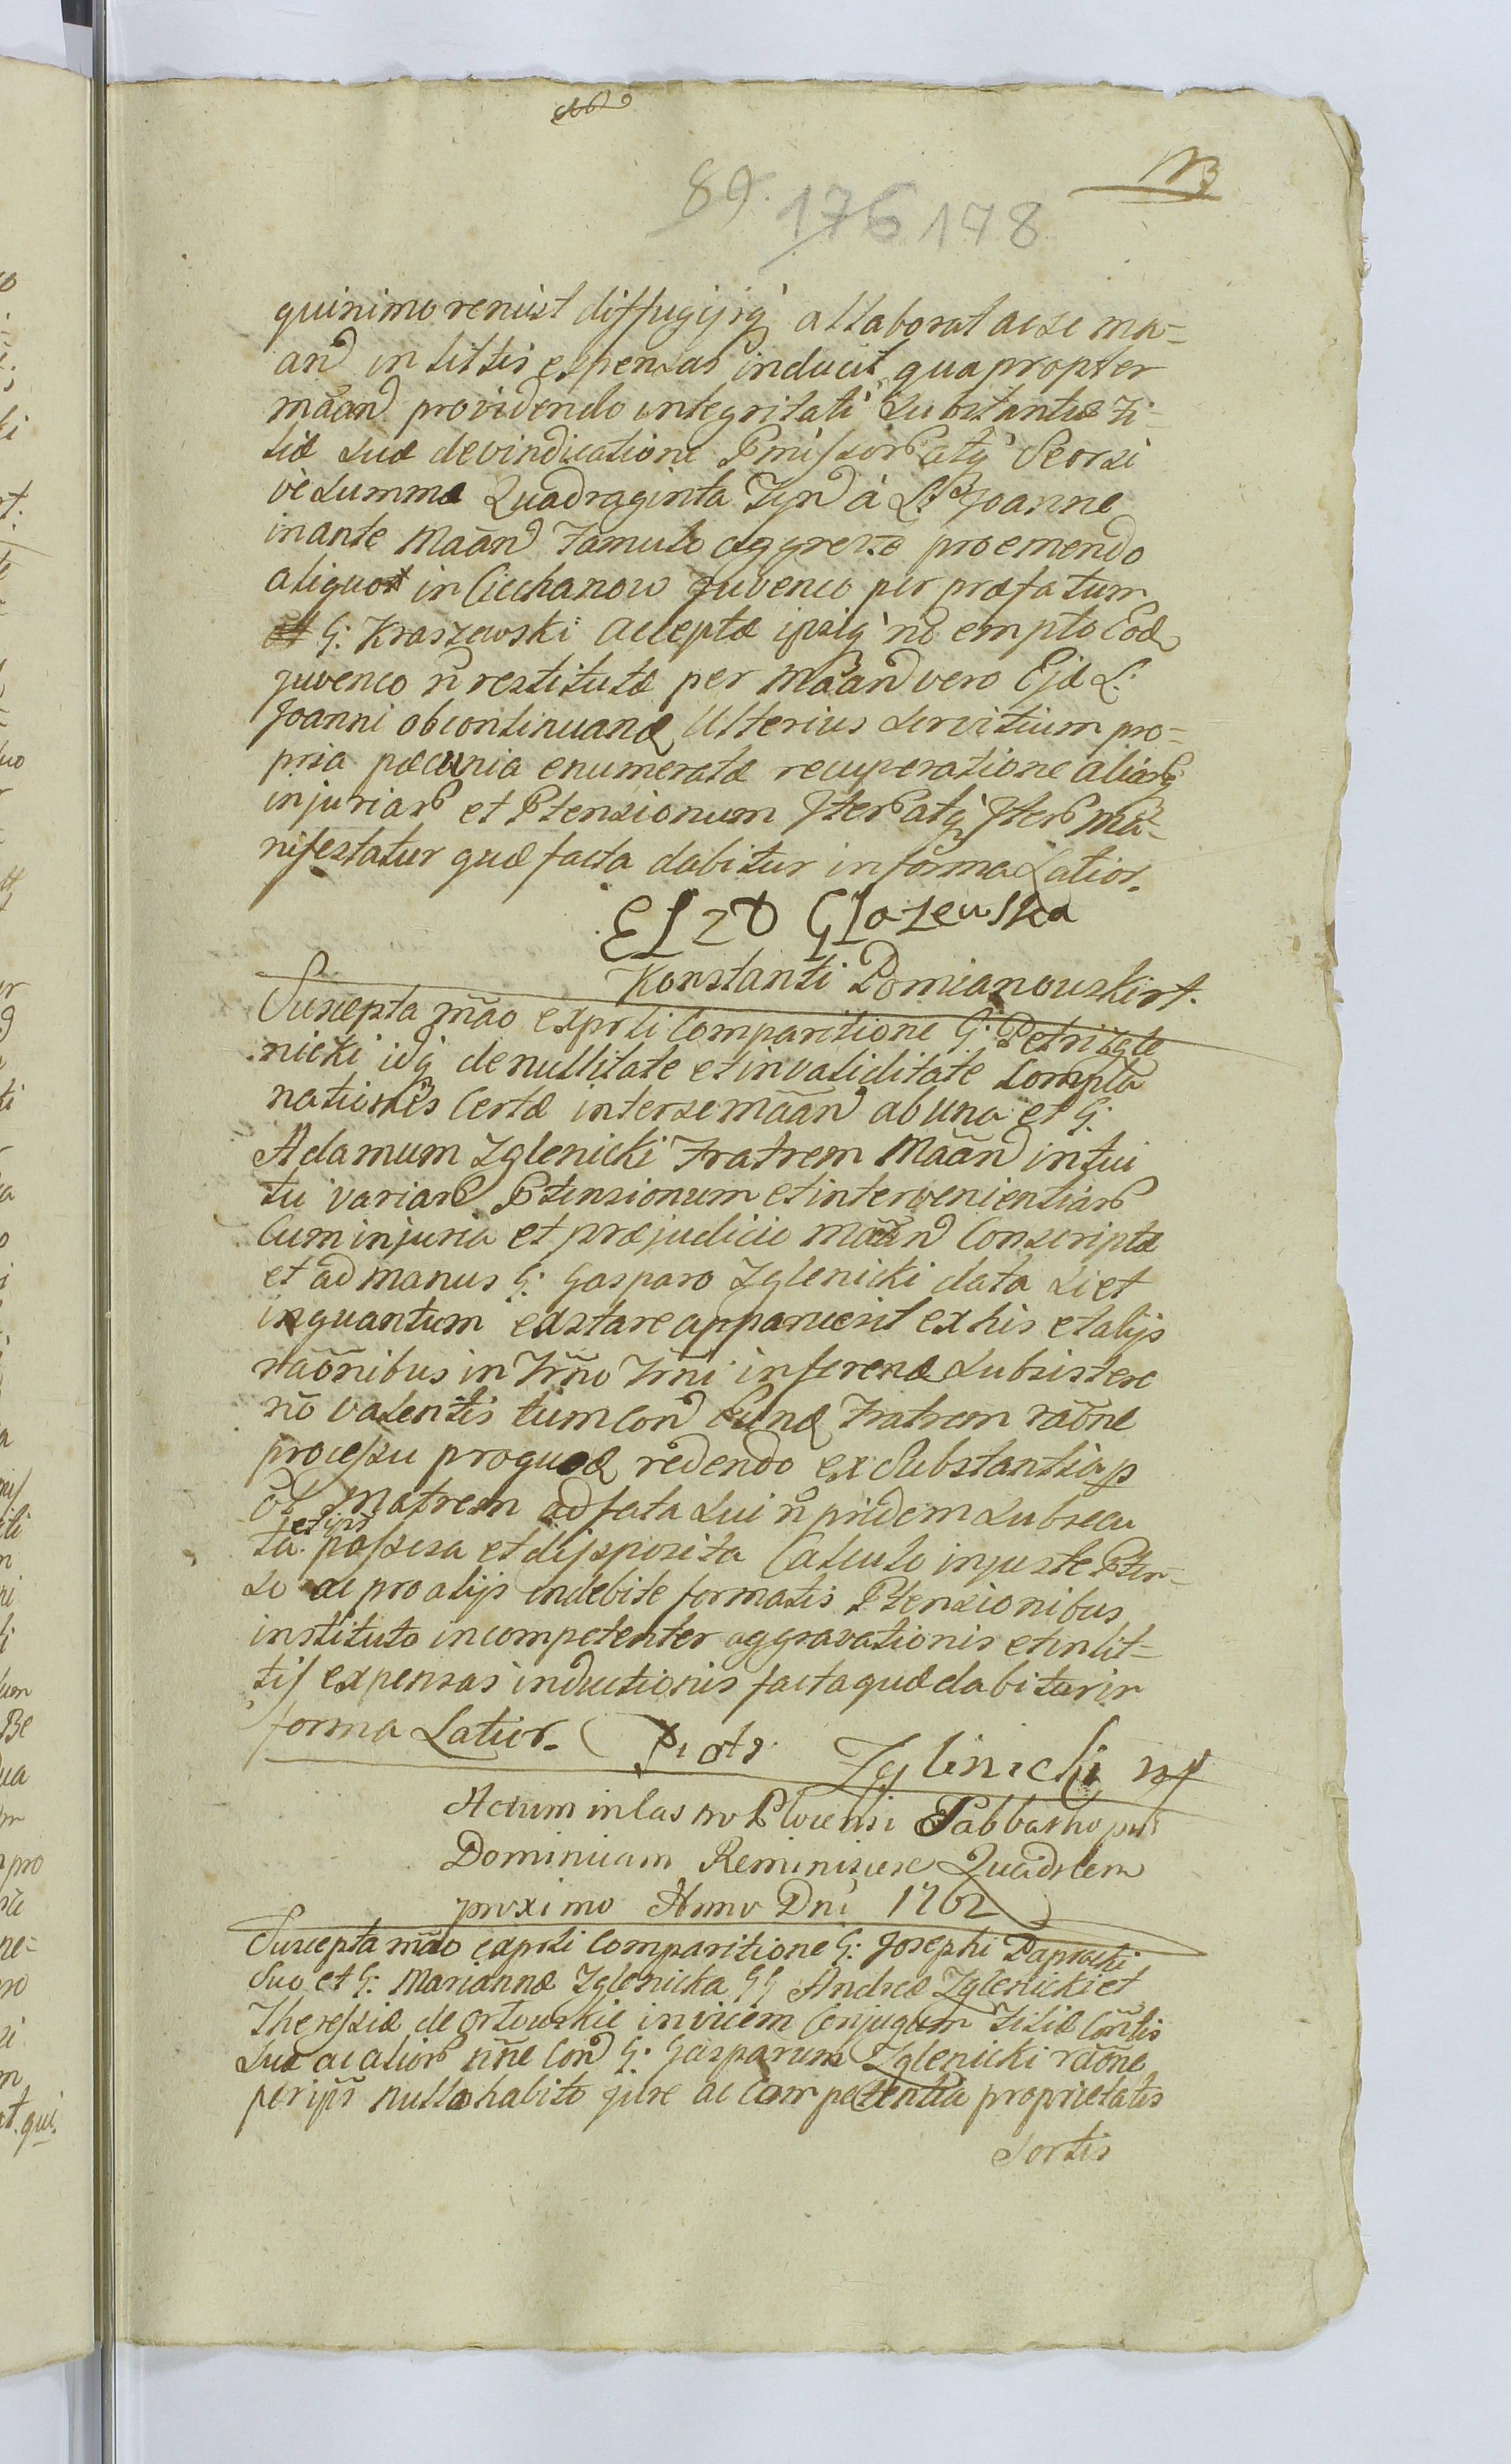 89. 176 178
quinimo renuit diffugijsq́ allaborat ac se ma=
and in littis expensas inducit quapropter
mãand providendo integritati substantiæ fi=
liæ suæ devindicatione Pmissorͮ atq́ Seorsi
ve summæ Quadraginta Tyn̄ à L: Joanne
inante Mãand Famulo aggresso pro emendo
aliquot in Ciechanow Juvenco per præfatum
G: Kraszewski acceptæ ipsiq́ nõ empto Eod
juvenco ñ restitutæ per Mãand vero Ejd L:
Joanni ob continuand Ulterius servitium pro=
pria pæcunia enumeratæ recuperatione aliarͮq́
injuriarͮ et Ptensionum Iterͮ atq́ Iterͮ Ma=
nifestatur quæ facta dabitur in forma Latiori.
Konstanti Domianowski
Suscepta mão expoti Comparitione G: Petri Zgle
nicki idq́ de nullitate et invaliditate Compla
nationis Certæ inter se mãand ab una et G:
Adamum Zglenicki Fratrem Mãand intui
tu variarͮ Ptensionum et intervenientiarͮ
Cum injuria et præjudicio mãand Conscriptæ
et ad manus G: Gasparo Zglenicki data si et
inquantum exstare apparuerit ex his et alijs
rãonibus in Trño Trñi inferend subsistere
nõ valentis tum Con̄ Eund Fratrem rãone
processu pro quod redendo ex Substantia p
ob Matrem ad fata sui ñ pridem subsecu
ta et ipsͬ possessa et disposita Calculo injuste Pten=
so ac pro alijs indebite formatis Ptensionibus
instituto incompetenter aggravationis et in lit=
tis expensas inductionis facta quæ dabitur in
forma Latiori. Piotr Zglinicki mp
Actum in Castro Plocensi Sabbatho post
Dominicam Reminiscere Quadrlem
proximo Anno Dnĩ 1762
Suscepta mão expoti Comparitione G: Josephi Paprocki
Suo et G: Mariannæ Zglenicka GG Andreæ Zglenicki et
Theressiæ de Orlowskie invicem Conjugum Filiæ Cons̃lis
Suæ ac aliorͮ ñne Con̄ G: Gasparum Zglenicki rãone
per ipsͬ nullo habito jure ac competentia proprietatis
Sortis